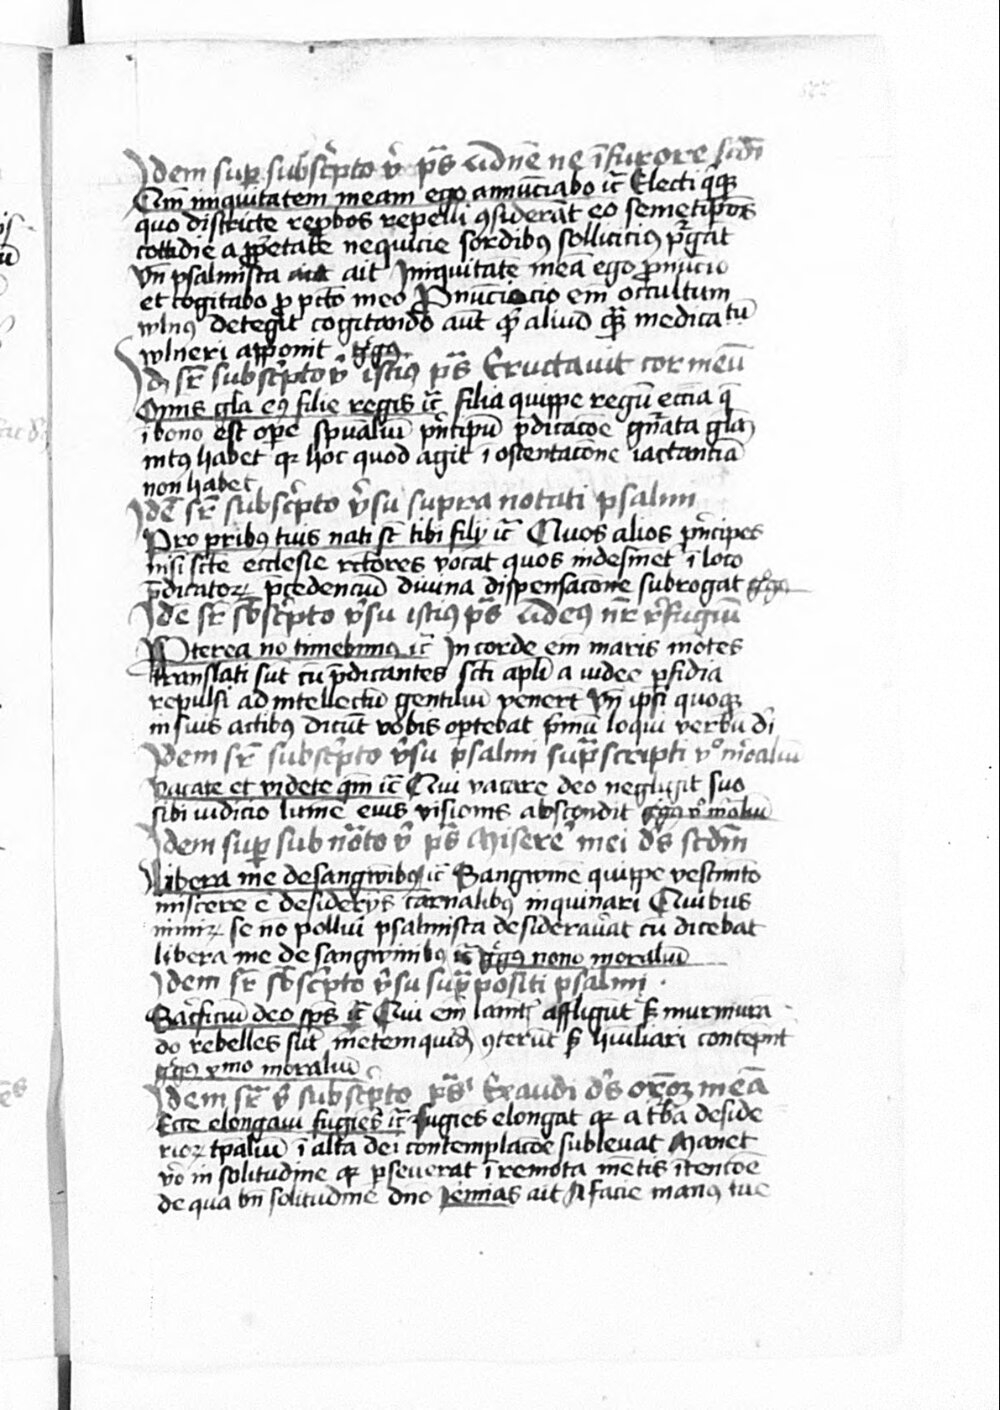 Idem sup̱ subsc͛pto v̄ p̄s dn̄e ne ī furore scd̄i
Qm̄ iniquitatem meam ego annūciabo ⁊c̄ Electi q̄ꝗ
quo districte rep̱bos repelli ꝯsiderāt eo semetip̄os
cottidie a ꝓp̄etate nequicie sordibꝰ sollicitiꝰ p̄gāt
vn̄ psalmista ait Iniquitatē meā ego ꝓnūcio
et cogitabo ꝓ pctō meo Ꝓnūciacio em̄ occultum
wlnꝰ detegit cogitando aūt qͣ aliud qͣ medicatū
wlneri apponit g̊gꝰ
Id sr̄ subsc͛pto v̄ istiꝰ p̄s Eructavit cor meū
Om̄is gla eꝰ filie regis ⁊c̄ filia quippe regū eccīa q̄
ī bono est op̱e sp̄ualiū p̄ncipū p̄dicacōe gn̄ata glaꝫ
intꝰ habet qꝛ hoc quod agit ī ostentacōne iactantiā
non habet
Idē sr̄ subsc͛pto v̄su supra notati psalmi
Pro pr̄ibꝰ tuis nati st̄ tibi filij ⁊c̄ Quos alios p̄ncipes
nisi scē ecclesie rectores vocat quos indesinēt ī loco
p̄dicatoꝝ p̄cedenciū divina dispensacōne subrogat g̊gꝰ
Idē sr̄ sb̄sc͛pto v̄su istiꝰ p̄s deꝰ nr̄ refugiū
Ꝓpterea nō timebimꝰ ⁊c̄ In corde em̄ maris mōtes
translati sūt cū p̄dicantes scī apl̄i a iudee ꝑfidia
repulsi ad intellectū gentiliū venert̄ vn̄ ipsi quoꝗ
in suis actibꝰ dicūt vobis oꝑtebat p̄mū loqui verbū dī
Idem sr̄ subsc͛pto v̄su psalmi sup̄scripti vͦ moraliū
vacate et videte qm̄ ⁊c̄ Qui vacare deo negligit suo
sibi iudicio lumē eius visionis abscondit g̊gꝰ vͦ moraliū
Idem sup̱ sub nōto v̄ p̄s Miserē mei ds̄ scdm̄
Libera me de sangwībꝰ ⁊c̄ Sangwine quippe vestimēto
miscere ē desiderijs carnalibꝰ inquinari Quibus
nimiꝝ se nō pollui psalmista desideravat cū dicebat
libera me de sangwinibꝰ ⁊c̄ g̊gꝰ nono moraliū
Idem sr̄ sb̄sc͛pto v̄su supͣpositi psalmi
Sac͛ficiū deo sp̄s ⁊c̄ Qui em̄ affligūt sꝫ murmura
do rebelles sūt mētem quidē ꝯterūt sꝫ hūiliari contēpnt
g̊gꝰ xmo moraliū
Idem sr̄ v̄ subsc͛pto p̄s Exaudi ds̄ orōꝫ meā
Ecce elongavi fugiēs ⁊c̄ fugiēs elongat qꝛ a t̄ba deside
rioꝝ tp̄aliū ī alta dei contemplacōe sublevat Manet
vo in solitudine qꝛ ꝑseverat ī remota mētis ītencōe
de qua bn̄ solitudine dn̄o Ieremias ait A facie manꝰ tue